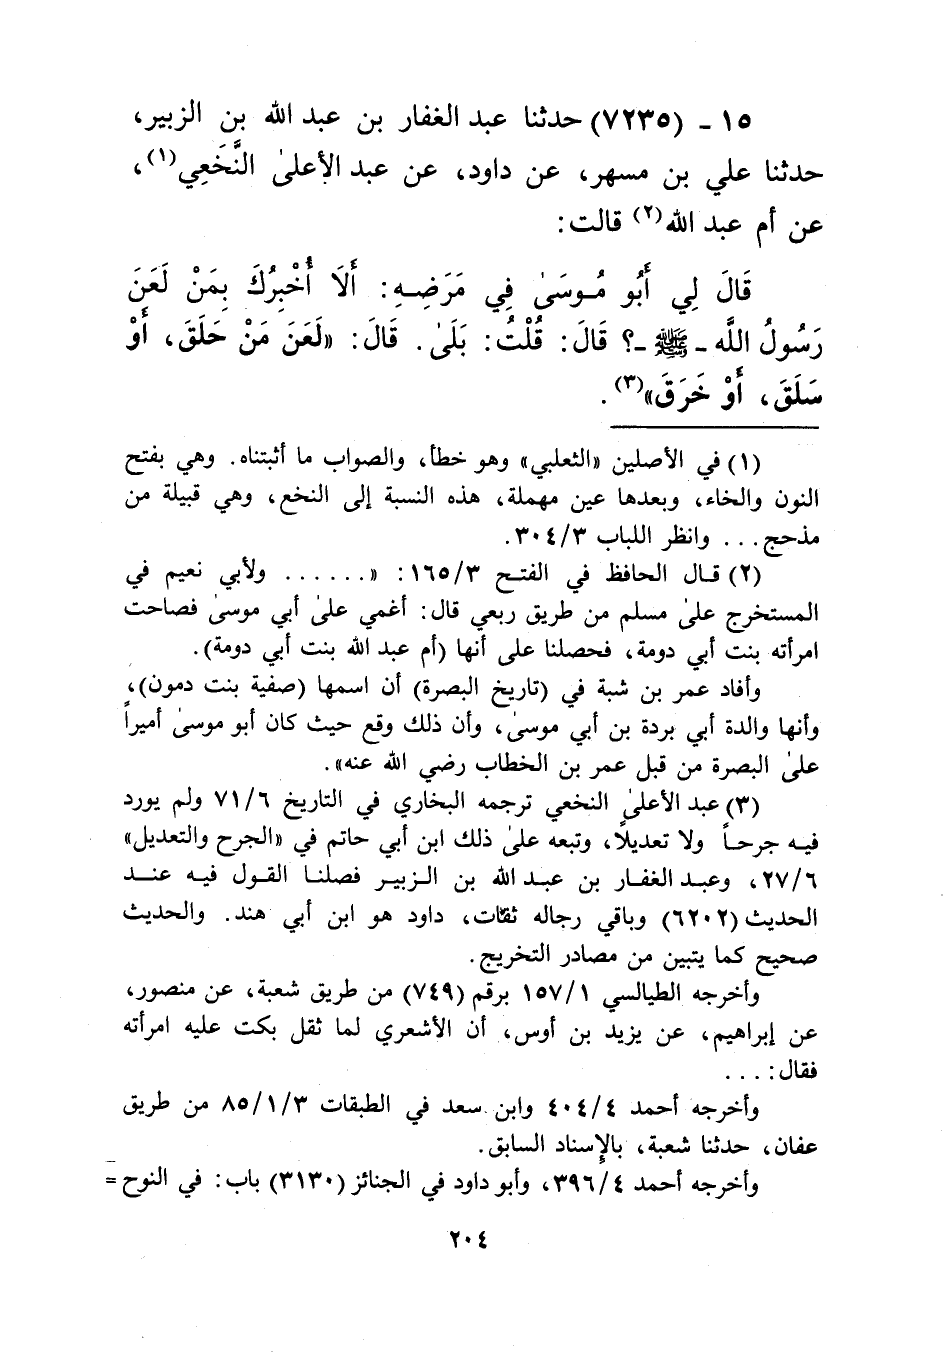 ١٥ - (٧٢٣٥) حدثنا عبد الغفار بن عبد الله بن الزبير،
حدثنا علي بن مسهر، عن داود، عن عبد الأعلىٰ النَّخَعِي(١)،
عن أم عبد الله(٢) قالت:
قَالَ لِي أَبُو مُوسَىٰ فِي مَرَضِهِ: أَلَا أُخْبِرُكَ بِمَنْ لَعَنَ
رَسُولُ اللَّه - ﷺ -؟ قَالَ: قُلْتُ: بَلَىٰ. قَالَ: «لَعَنَ مَنْ حَلَقَ، أَوْ
سَلَقَ، أَوْ خَرَقَ»(٣).
(١) في الأصلين «الثعلبي» وهو خطأ، والصواب ما أثبتناه. وهي بفتح
النون والخاء، وبعدها عين مهملة، هذه النسبة إلى النخع، وهي قبيلة من
مذحج... وانظر اللباب ٣٠٤/٣.
(٢) قال الحافظ في الفتح ١٦٥/٣: «...... ولأبي نعيم في
المستخرج علىٰ مسلم من طريق ربعي قال: أغمي علىٰ أبي موسىٰ فصاحت
امرأته بنت أبي دومة، فحصلنا على أنها (أم عبد الله بنت أبي دومة).
وأفاد عمر بن شبة في (تاريخ البصرة) أن اسمها (صفية بنت دمون)،
وأنها والدة أبي بردة بن أبي موسىٰ، وأن ذلك وقع حيث كان أبو موسىٰ أميراً
علىٰ البصرة من قبل عمر بن الخطاب رضي الله عنه».
(٣) عبد الأعلىٰ النخعي ترجمه البخاري في التاريخ ٧١/٦ ولم يورد
فيه جرحاً ولا تعديلاً، وتبعه علىٰ ذلك ابن أبي حاتم في «الجرح والتعديل»
٢٧/٦، وعبد الغفار بن عبد الله بن الزبير فصلنا القول فيه عند
الحديث (٦٢٠٢) وباقي رجاله ثقات، داود هو ابن أبي هند. والحديث
صحيح كما يتبين من مصادر التخريج.
وأخرجه الطيالسي ١٥٧/١ برقم (٧٤٩) من طريق شعبة، عن منصور،
عن إبراهيم، عن يزيد بن أوس، أن الأشعري لما ثقل بكت عليه امرأته
فقال: ...
وأخرجه أحمد ٤٠٤/٤ وابن سعد في الطبقات ٨٥/١/٣ من طريق
عفان، حدثنا شعبة، بالإسناد السابق.
وأخرجه أحمد ٣٩٦/٤، وأبو داود في الجنائز (٣١٣٠) باب: في النوح =
٢٠٤